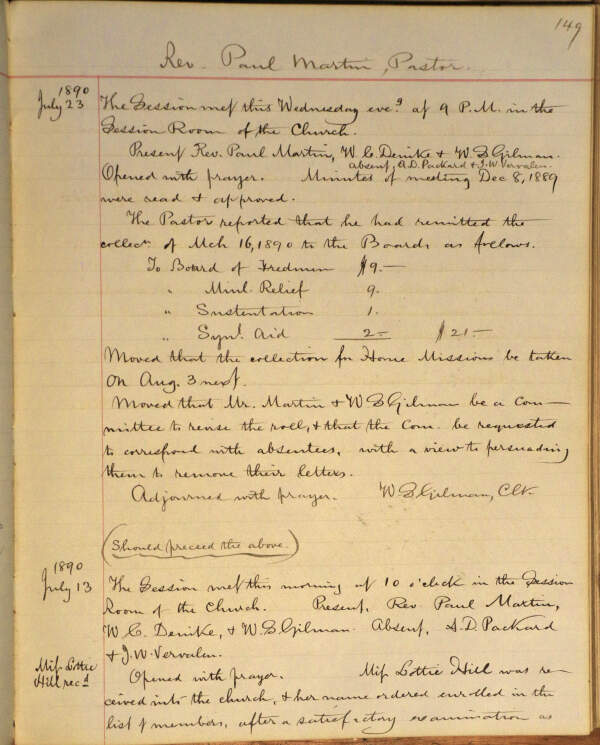 149
Rev. Paul Martin, Pastor.
1890
July 23
The Session met this Wednesday eve.g at 9 P.M. in the
Session Room of the Church.
Present Rev. Paul Martin, W. C. Denike & W. S. Gilman.
absent, A. D. Packard & J. W. Vervalen.
Opened with prayer. Minutes of meeting Dec 8, 1889
were read & approved.
The Pastor reported that he had remitted the
collecn. of Mch 16, 1890 to the Boards as follows.
To Board of Fredmen $9.—
" Minl. Relief 9.
" Sustentation 1.
" Synl. Aid 2— $21—
Moved that the collection for Home Missions be taken
on Aug. 3 next.
Moved that Mr. Martin & W S Gilman be a com-
mittee to revise the roll, & that the Com. be requested
to correspond with absentees, with a view to persuading
them to remove their letters.
Adjourned with prayer. W S Gilman, Clk.
(Should preceed the above.)
1890
July 13
The Session met this morning at 10 o'clock in the Session
Room of the Church. Present, Rev. Paul Martin,
W. C. Denike, & W. S. Gilman. Absent, A. D. Packard
& J. W. Vervalen.
Miss Lottie
Hill recd
Opened with prayer. Miss Lottie Hill was re-
ceived into the church, & her name ordered enrolled in the
list of members, after a satisfactory examination as